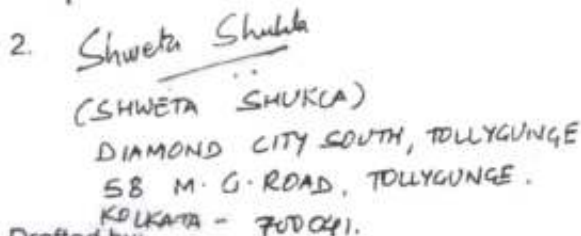 2. Shweta Shukla
(SHWETA SHUKLA)
DIAMOND CITY SOUTH, TOLLYGUNGE
58 M. G. ROAD, TOLLYGUNGE.
KOLKATA - 700041.
Drafted by: